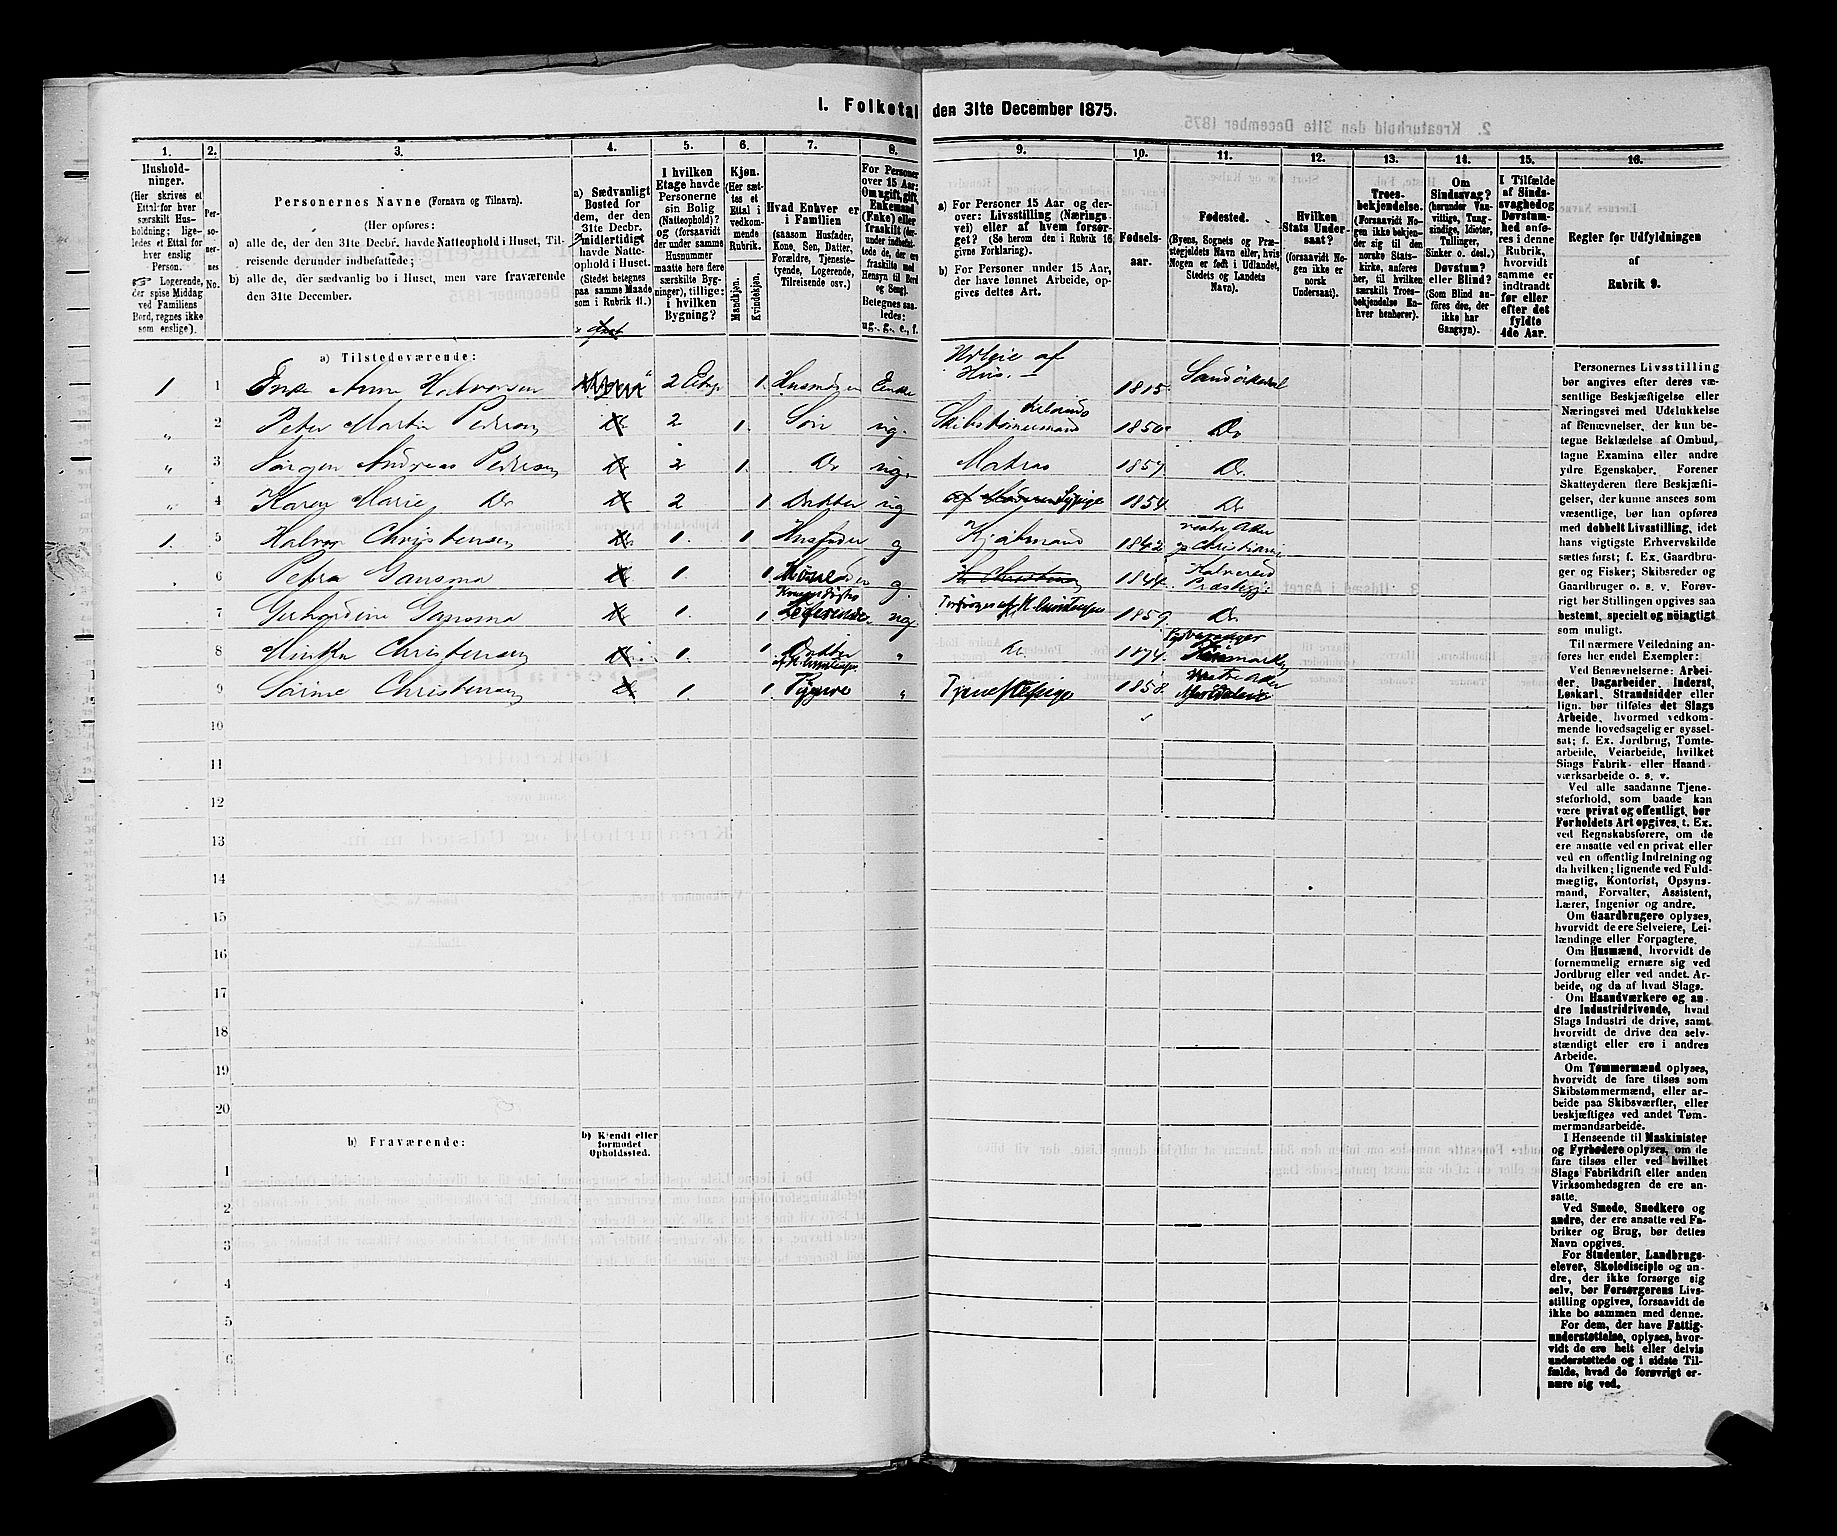 I. Folketal den 31te December 1875.
1. 2. 3. 4. 5. 6. 7. 8. 9. 10. 11. 12. 13. 14. 15. 16.
Hushold-
ninger.
(Her skrives et
Ettal for hver
særskilt Hus-
holdning; lige-
ledes et Ettal for
hver enslig
Person.
Logerende,
der spise Middag
ved Familiens
Bord, regnes ikke
som enslige).
Per-
so-
ner-
nes
No.
Personernes Navne (Fornavn og Tilnavn).
(Her opføres:
a) alle de, der den 31te Decbr. havde Natteophold i Huset, Til-
reisende derunder indbefattede;
b) alle de, der sædvanlig bo i Huset, men vare fraværende
den 31te December.
a) Sædvanligt
Bosted for
dem, der den
31te Decbr.
midlertidigt
havde Natte-
ophold i Huset.
(Stedet betegnes
paa samme Maade
som i Rubrik 11.)
I hvilken
Etage havde
Personerne
sin Bolig
(Natteophold)?
og (forsaavidt
der under samme
Husnummer
maatte høre flere
særskilte Byg-
ninger), tillige:
i hvilken
Bygning?
Kjøn.
(Her sæt-
tes et
Ettal i
vedkom-
mende
Rubrik.
Mandkjøn.
Kvindekjøn.
Hvad Enhver er
i Familien
(saasom Husfader,
Kone, Søn, Datter,
Forældre, Tjeneste-
tyende, Logerende,
Tilreisende osv.)
For Personer
over 15 Aar:
Om ugift, gift,
Enkemand
(Enke) eller
fraskilt
Betegnes saa-
ledes:
ug., g., e., f.
a) For Personer 15 Aar og der-
over: Livsstilling (Nærings-
vei) eller af hvem forsør-
get? (Se herom den i Rubrik 16
givne Forklaring).
b) For Personer under 15 Aar,
der have lønnet Arbeide, op-
gives dettes Art.
Fødsels-
aar.
Fødested.
(Byens, Sognets og Præ-
stegjeldets Navn eller, hvis
Nogen er født i Udlandet,
Stedets og Landets
Navn).
Hvilken
Stats Under-
saat?
(forsaavidt No-
gen ikke er
norsk
Undersaat).
Troes-
bekjendelse.
(Forsaavidt No-
gen ikke bekjen-
der sig til den
norske Stats-
kirke, anføres
her, til hvilken
særskilt Troes-
bekjendelse En-
hver henhører).
Om
Sindssvag?
(herunder Van-
vittige, Tung-
sindige, Idioter,
Tullinger,
Sinker o. desl.)
Døvstum?
eller Blind?
(Som Blind an-
føres den, der
ikke har
Gangsyn).
I Tilfælde
af Sinds-
svaghed og
Døvstum-
hed anfø-
res i denne
Rubrik,
hvorvidt
samme er
indtraadt
før eller
efter det
fyldte
4de Aar.
Regler før Udfyldningen
af
Rubrik 9.
a) Tilstedeværende:
1 1 Enke Anne Halvorsen 2 Etag. 1. Enke Hus. 1815.
" 2 Peter Martin Pedersen 2 1. Søn ug. 1850. Do
" 3 Jørgen Andreas Pedersen 2 1. Do ug. Matros 1857 Do.
" 4 Karen Marie Do 2 1 Datter ug 1854. Do
1. 5 Halvor Christensen 1. 1 Husfader g Kjøbmand 1842
6 Petra 1. 1. g. 1844.
7 1. 1. ug. 1859. Do.
8 Christensen 1. 1. Datter " 1874.
9 Sørine Christensen 1. 1. " Tjenestepige 1858.
10
11
12
13
14
15
16
17
18
19
20
b) Fraværende:
b) Kjendt eller
formodet
Opholdssted.
1
2
3
4
5
6
Personernes Livsstilling
bør angives efter deres væ-
sentlige Beskjæftigelse eller
Næringsvei med Udelukkelse
af Benævnelser, der kun be-
tegne Beklædelse af Ombud,
tagne Examina eller andre
ydre Egenskaber. Forener
Skatteyderen flere Beskjæfti-
gelser, der kunne ansees som
væsentlige, bør han opføres
med dobbelt Livsstilling, idet
hans vigtigste Erhvervskilde
sættes først; f. Ex. Gaardbru-
ger og Fisker; Skibsreder og
Gaardbruger o. s. v. Forøv-
rigt bør Stillingen opgives saa
bestemt, specielt og nøiagtigt
som muligt.
Til nærmere Veiledning an-
føres her endel Exempler:
Ved Benævnelserne: Arbei-
der, Dagarbeider, Inderst,
Løskarl, Strandsidder eller
lign. bør tilføies det Slags
Arbeide, hvormed vedkom-
mende hovedsagelig er syssel-
sat; f. Ex. Jordbrug, Tomte-
arbeide, Veiarbeide, hvilket
Slags Fabrik- eller Haand-
værksarbeide o. s. v.
Ved alle saadanne Tjene-
steforhold, som baade kan
være privat og offentligt, bør
Forholdets Art opgives, t. Ex.
ved Regnskabsførere, om de
ere ansatte ved en privat eller
ved en offentlig Indretning og
da hvilken; lignende ved Fuld-
mægtig, Kontorist, Opsyns-
mand, Forvalter, Assistent,
Lærer, Ingeniør og andre.
Om Gaardbrugere oplyses,
hvorvidt de ere Selveiere, Lei-
lændinge eller Forpagtere.
Om Husmænd, hvorvidt de
fornemmelig ernære sig ved
Jordbrug eller ved andet Ar-
beide, og da af hvad Slags.
Om Haandværkere og an-
dre Industridrivende, hvad
Slags Industri de drive, samt
hvorvidt de drive den selv-
stændigt eller ere i andres
Arbeide.
Om Tømmermænd oplyses,
hvorvidt de fare tilsøs som
Skibstømmermænd, eller ar-
beide paa Skibsværfter, eller
beskjæftiges ved andet Tøm-
mermandsarbeide.
I Henseende til Maskinister
og Fyrbødere oplyses, om de
fare tilsøs eller ved hvilket
Slags Fabrikdrift eller anden
Virksomhedsgren de ere an-
satte.
Ved Smede, Snedkere og
andre, der ere ansatte ved Fa-
briker og Brug, bør dettes
Navn opgives.
For Studenter, Landbrugs-
elever, Skoledisciple og an-
dre, der ikke forsørge sig
selv, bør Forsørgerens Livs-
stilling opgives, forsaavidt de
ikke bo sammen med denne.
For dem, der have Fattig-
understøttelse, oplyses, hvor-
vidt de ere helt eller delvis
understøttede og i sidste Til-
fælde, hvad de forøvrigt er-
nære sig ved.